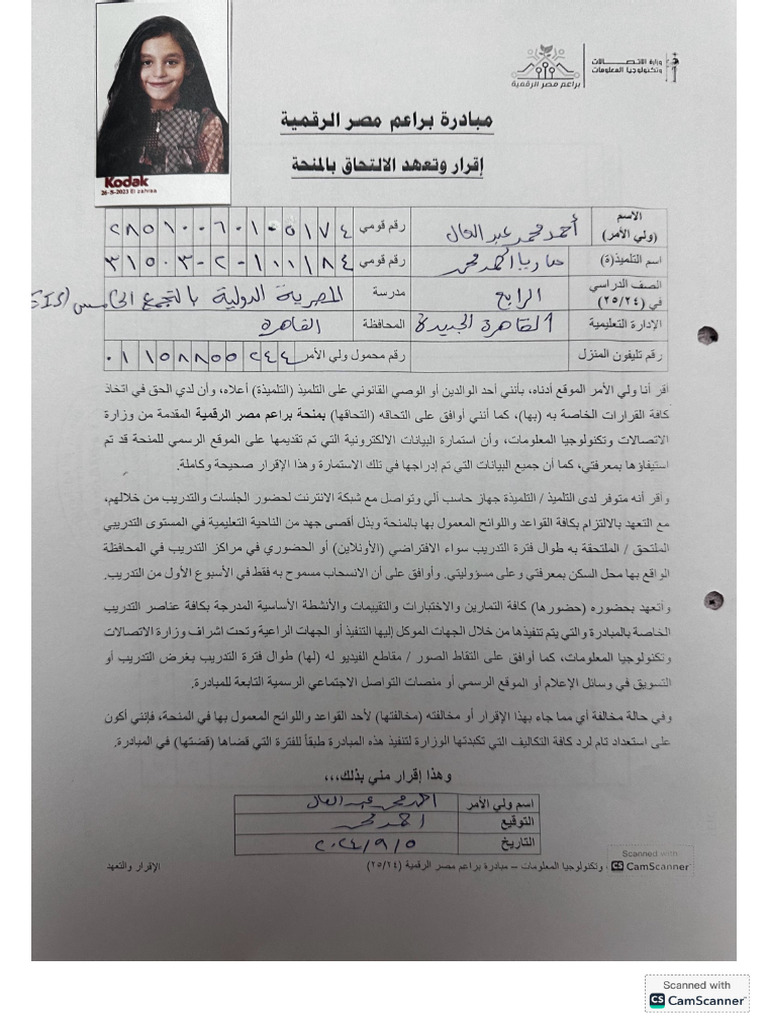 وزارة الاتصالات
وتكنولوجيا المعلومات
براعم مصر الرقمية
Kodak
26-5-2023 El zahraa
مبادرة براعم مصر الرقمية
إقرار وتعهد الالتحاق بالمنحة
الاسم (ولي الأمر) أحمد محمد عبد العال رقم قومي
اسم التلميذ(ة) رقم قومي
الصف الدراسي في (٢٥/٢٤) الرابع مدرسة المصرية الدولية بالتجمع الخامس
الإدارة التعليمية القاهرة الجديدة المحافظة القاهرة
رقم تليفون المنزل رقم محمول ولي الأمر ٠١١٥٨٨٥٥٢٤٤
أقر أنا ولي الأمر الموقع أدناه، بأنني أحد الوالدين أو الوصي القانوني على التلميذ (التلميذة) أعلاه، وأن لدي الحق في اتخاذ
كافة القرارات الخاصة به (بها)، كما أنني أوافق على التحاقه (التحاقها) بمنحة براعم مصر الرقمية المقدمة من وزارة
الاتصالات وتكنولوجيا المعلومات، وأن استمارة البيانات الالكترونية التي تم تقديمها على الموقع الرسمي للمنحة قد تم
استيفاؤها بمعرفتي، كما أن جميع البيانات التي تم إدراجها في تلك الاستمارة وهذا الإقرار صحيحة وكاملة.
وأقر أنه متوفر لدى التلميذ / التلميذة جهاز حاسب آلي وتواصل مع شبكة الانترنت لحضور الجلسات والتدريب من خلالهم،
مع التعهد بالالتزام بكافة القواعد واللوائح المعمول بها بالمنحة وبذل أقصى جهد من الناحية التعليمية في المستوى التدريبي
الملتحق / الملتحقة به طوال فترة التدريب سواء الافتراضي (الأونلاين) أو الحضوري في مراكز التدريب في المحافظة
الواقع بها محل السكن بمعرفتي وعلى مسؤوليتي. وأوافق على أن الانسحاب مسموح به فقط في الأسبوع الأول من التدريب.
وأتعهد بحضوره (حضورها) كافة التمارين والاختبارات والتقييمات والأنشطة الأساسية المدرجة بكافة عناصر التدريب
الخاصة بالمبادرة والتي يتم تنفيذها من خلال الجهات الموكل إليها التنفيذ أو الجهات الراعية وتحت اشراف وزارة الاتصالات
وتكنولوجيا المعلومات، كما أوافق على التقاط الصور / مقاطع الفيديو له (لها) طوال فترة التدريب بغرض التدريب أو
التسويق في وسائل الإعلام أو الموقع الرسمي أو منصات التواصل الاجتماعي الرسمية التابعة للمبادرة.
وفي حالة مخالفة أي مما جاء بهذا الإقرار أو مخالفته (مخالفتها) لأحد القواعد واللوائح المعمول بها في المنحة، فإنني أكون
على استعداد تام لرد كافة التكاليف التي تكبدتها الوزارة لتنفيذ هذه المبادرة طبقاً للفترة التي قضاها (قضتها) في المبادرة.
وهذا إقرار مني بذلك،،،
اسم ولي الأمر أحمد محمد عبد العال
التوقيع أحمد محمد
التاريخ ٢٠٢٤/٩/٥
Scanned with
CS CamScanner
وتكنولوجيا المعلومات – مبادرة براعم مصر الرقمية (٢٥/٢٤) الإقرار والتعهد
Scanned with
CS CamScanner